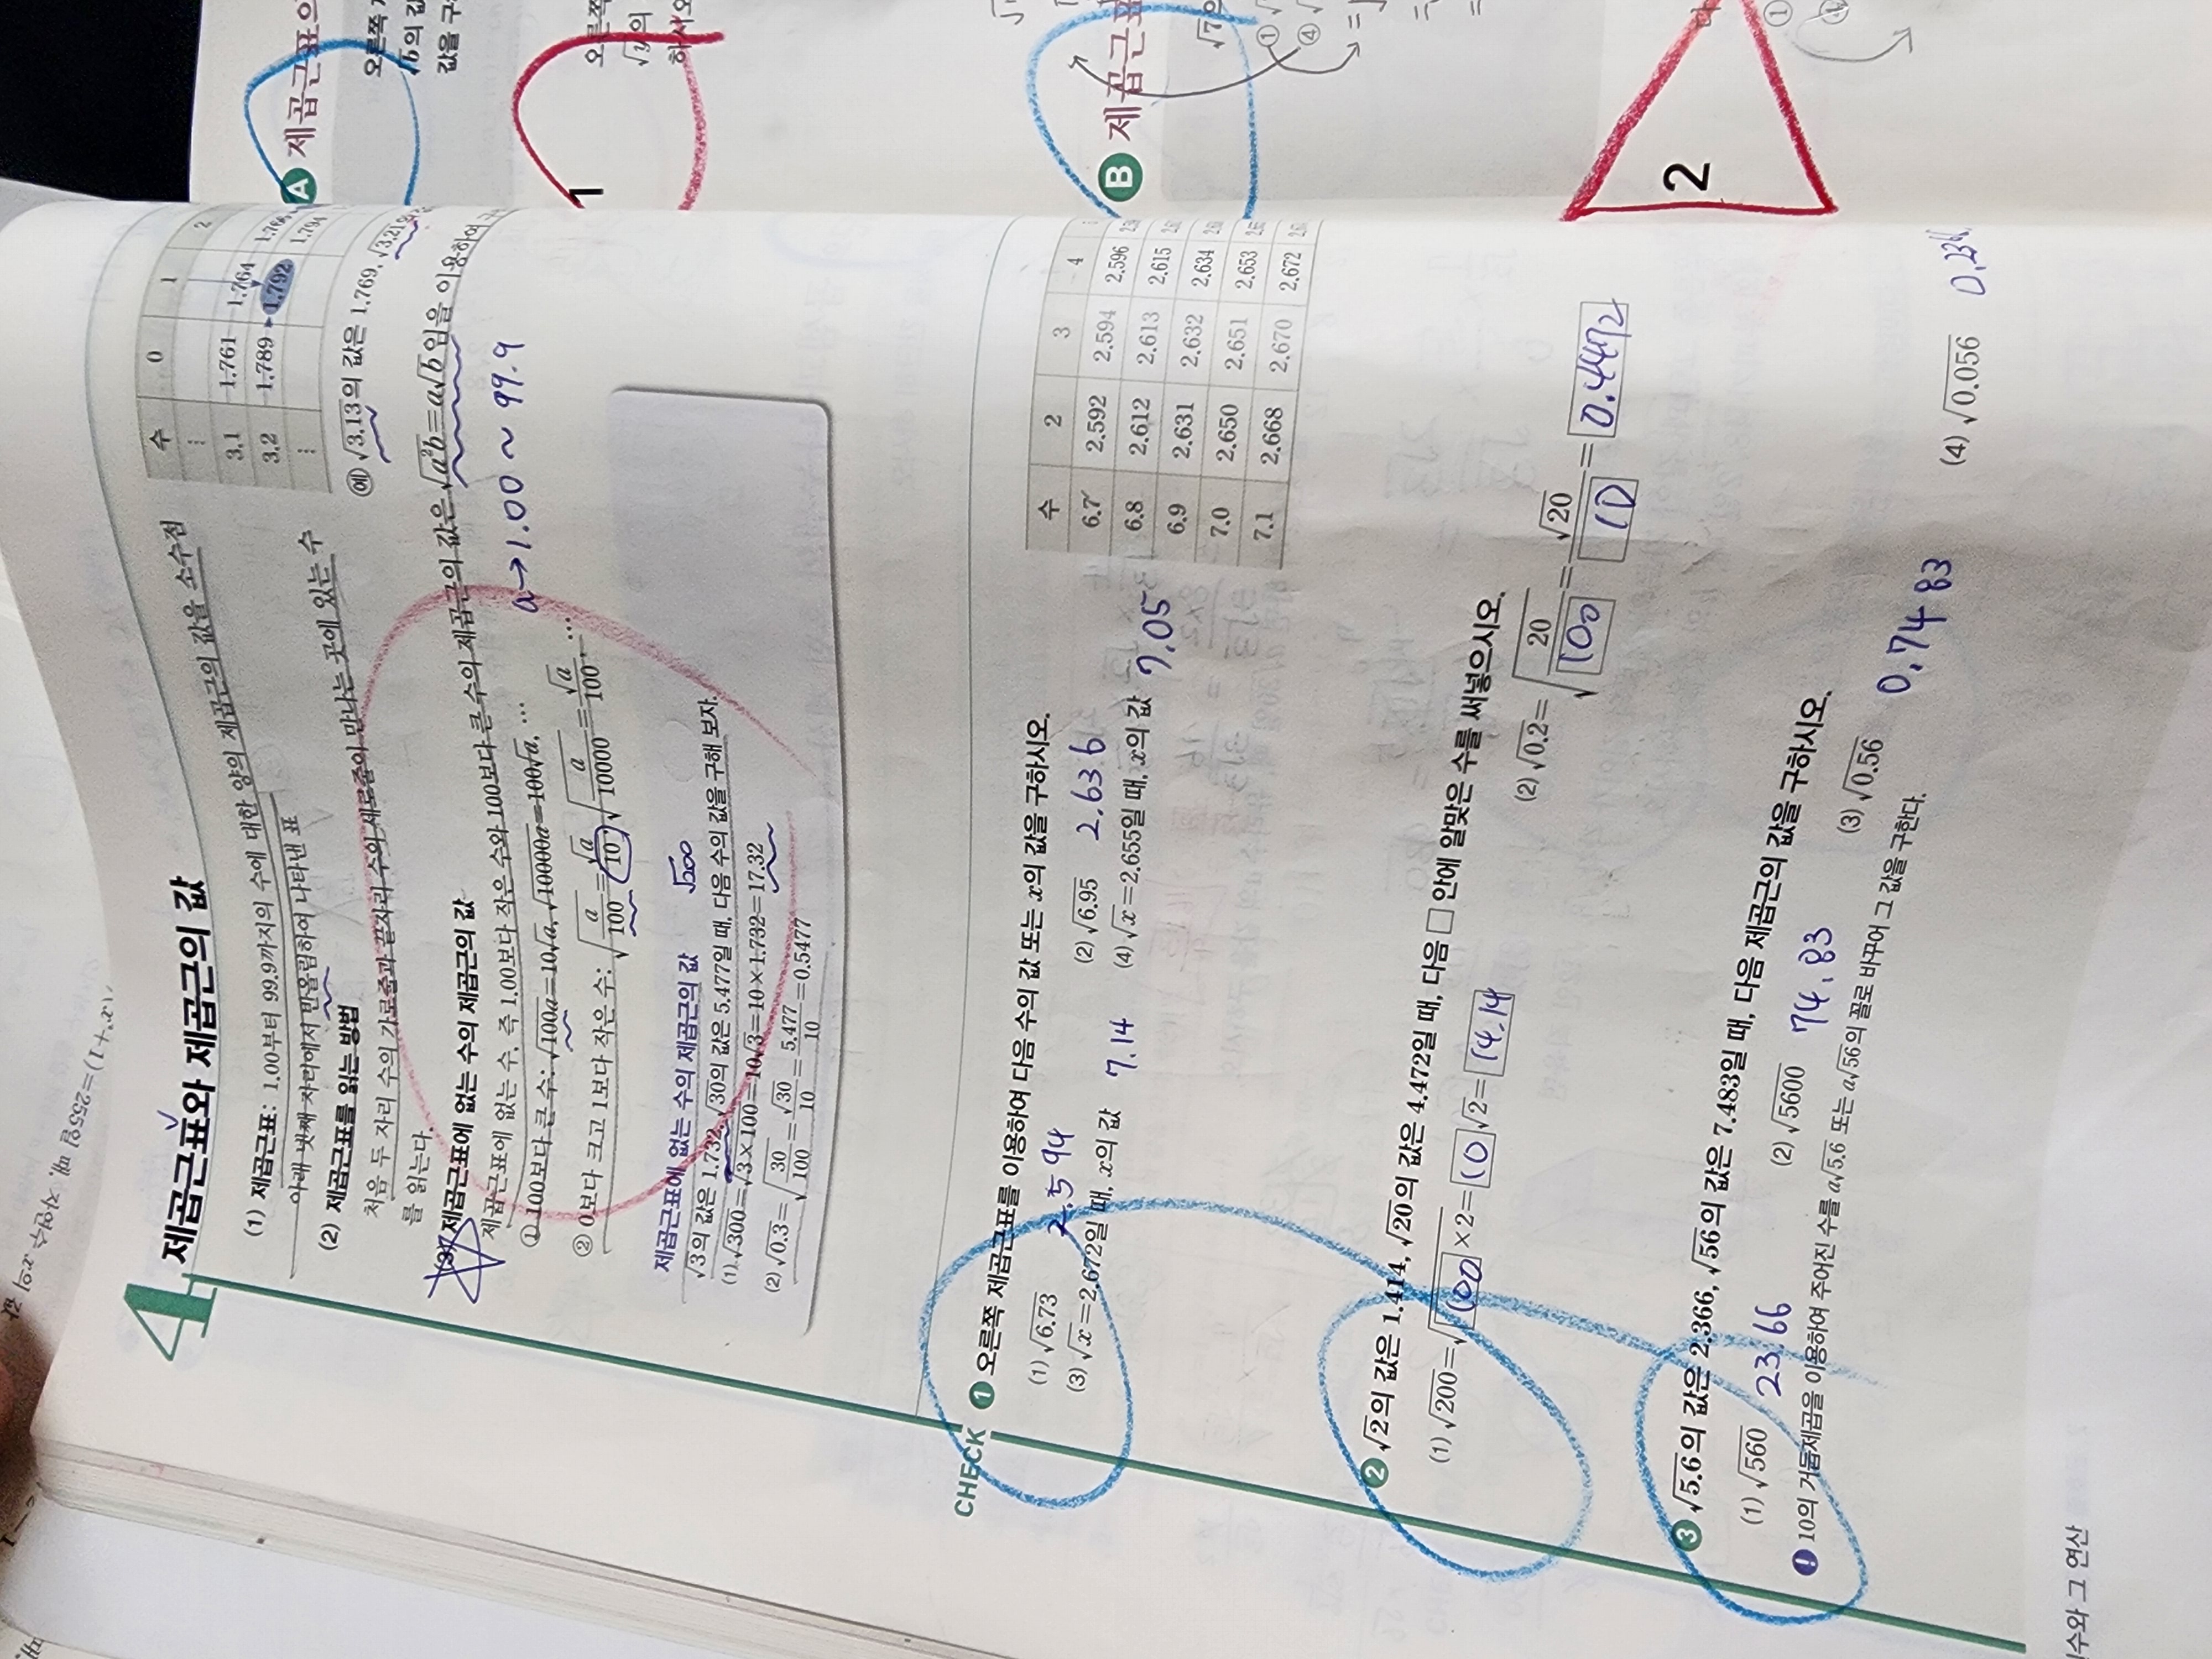 4 제곱근표와 제곱근의 값
(1) 제곱근표: 1.00부터 99.9까지의 수에 대한 양의 제곱근의 값을 소수점
아래 넷째 자리에서 반올림하여 나타낸 표
(2) 제곱근표를 읽는 방법
처음 두 자리 수의 가로줄과 끝자리 수의 세로줄이 만나는 곳에 있는 수
를 읽는다.
수 0 1 2
⋮
3.1 1.761 1.764 1.766
3.2 1.789 1.792 1.794
⋮
예 √3.13의 값은 1.769, √3.21의
(3) 제곱근표에 없는 수의 제곱근의 값
제곱근표에 없는 수, 즉 1.00보다 작은 수와 100보다 큰 수의 제곱근의 값은 √a²b=a√b임을 이용하여
a→1.00 ~ 99.9
① 100보다 큰 수: √100a=10√a, √10000a=100√a, …
② 0보다 크고 1보다 작은 수: √(a/100)=√a/10, √(a/10000)=√a/100, …
제곱근표에 없는 수의 제곱근의 값
√300
√3의 값은 1.732, √30의 값은 5.477일 때, 다음 수의 값을 구해 보자.
(1) √300=√3×100=10√3=10×1.732=17.32
(2) √0.3=√(30/100)=√30/10=5.477/10=0.5477
CHECK
1 오른쪽 제곱근표를 이용하여 다음 수의 값 또는 x의 값을 구하시오.
(1) √6.73 2.594
(2) √6.95 2.636
(3) √x=2.672일 때, x의 값 7.14
(4) √x=2.655일 때, x의 값 7.05
수 2 3 4
6.7 2.592 2.594 2.596
6.8 2.612 2.613 2.615
6.9 2.631 2.632 2.634
7.0 2.650 2.651 2.653
7.1 2.668 2.670 2.672
2 √2의 값은 1.414, √20의 값은 4.472일 때, 다음 □ 안에 알맞은 수를 써넣으시오.
(1) √200=√100×2=10√2=14.14
(2) √0.2=√(20/100)=√20/10=0.4472
3 √5.6의 값은 2.366, √56의 값은 7.483일 때, 다음 제곱근의 값을 구하시오.
(1) √560 23.66
(2) √5600 74.83
(3) √0.56 0.7483
(4) √0.056
10의 거듭제곱을 이용하여 주어진 수를 a√5.6 또는 a√56의 꼴로 바꾸어 그 값을 구한다.
수와 그 연산
A 제곱근표의
오른쪽
√b의 값
1
오른쪽
√y의
하시오
B 제곱근표
① √
④ √
2